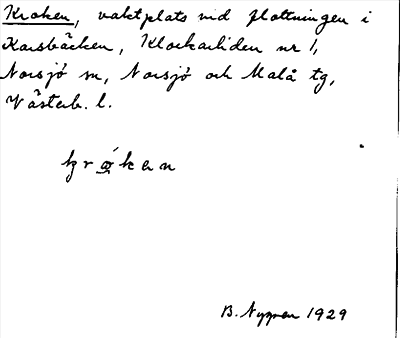 Kroken, vaktplats vid flottningen i
Karsbäcken, Klockarliden nr 1,
Norsjö sn, Norsjö och Malå tg,
Västerb. l.
B. Nygren 1929